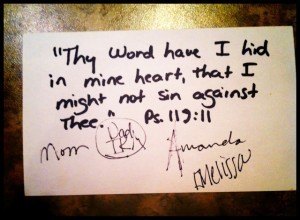 "Thy Word have I hid
in mine heart, that I
might not sin against
Thee." Ps. 119:11
Mom Dad Amanda
Melissa